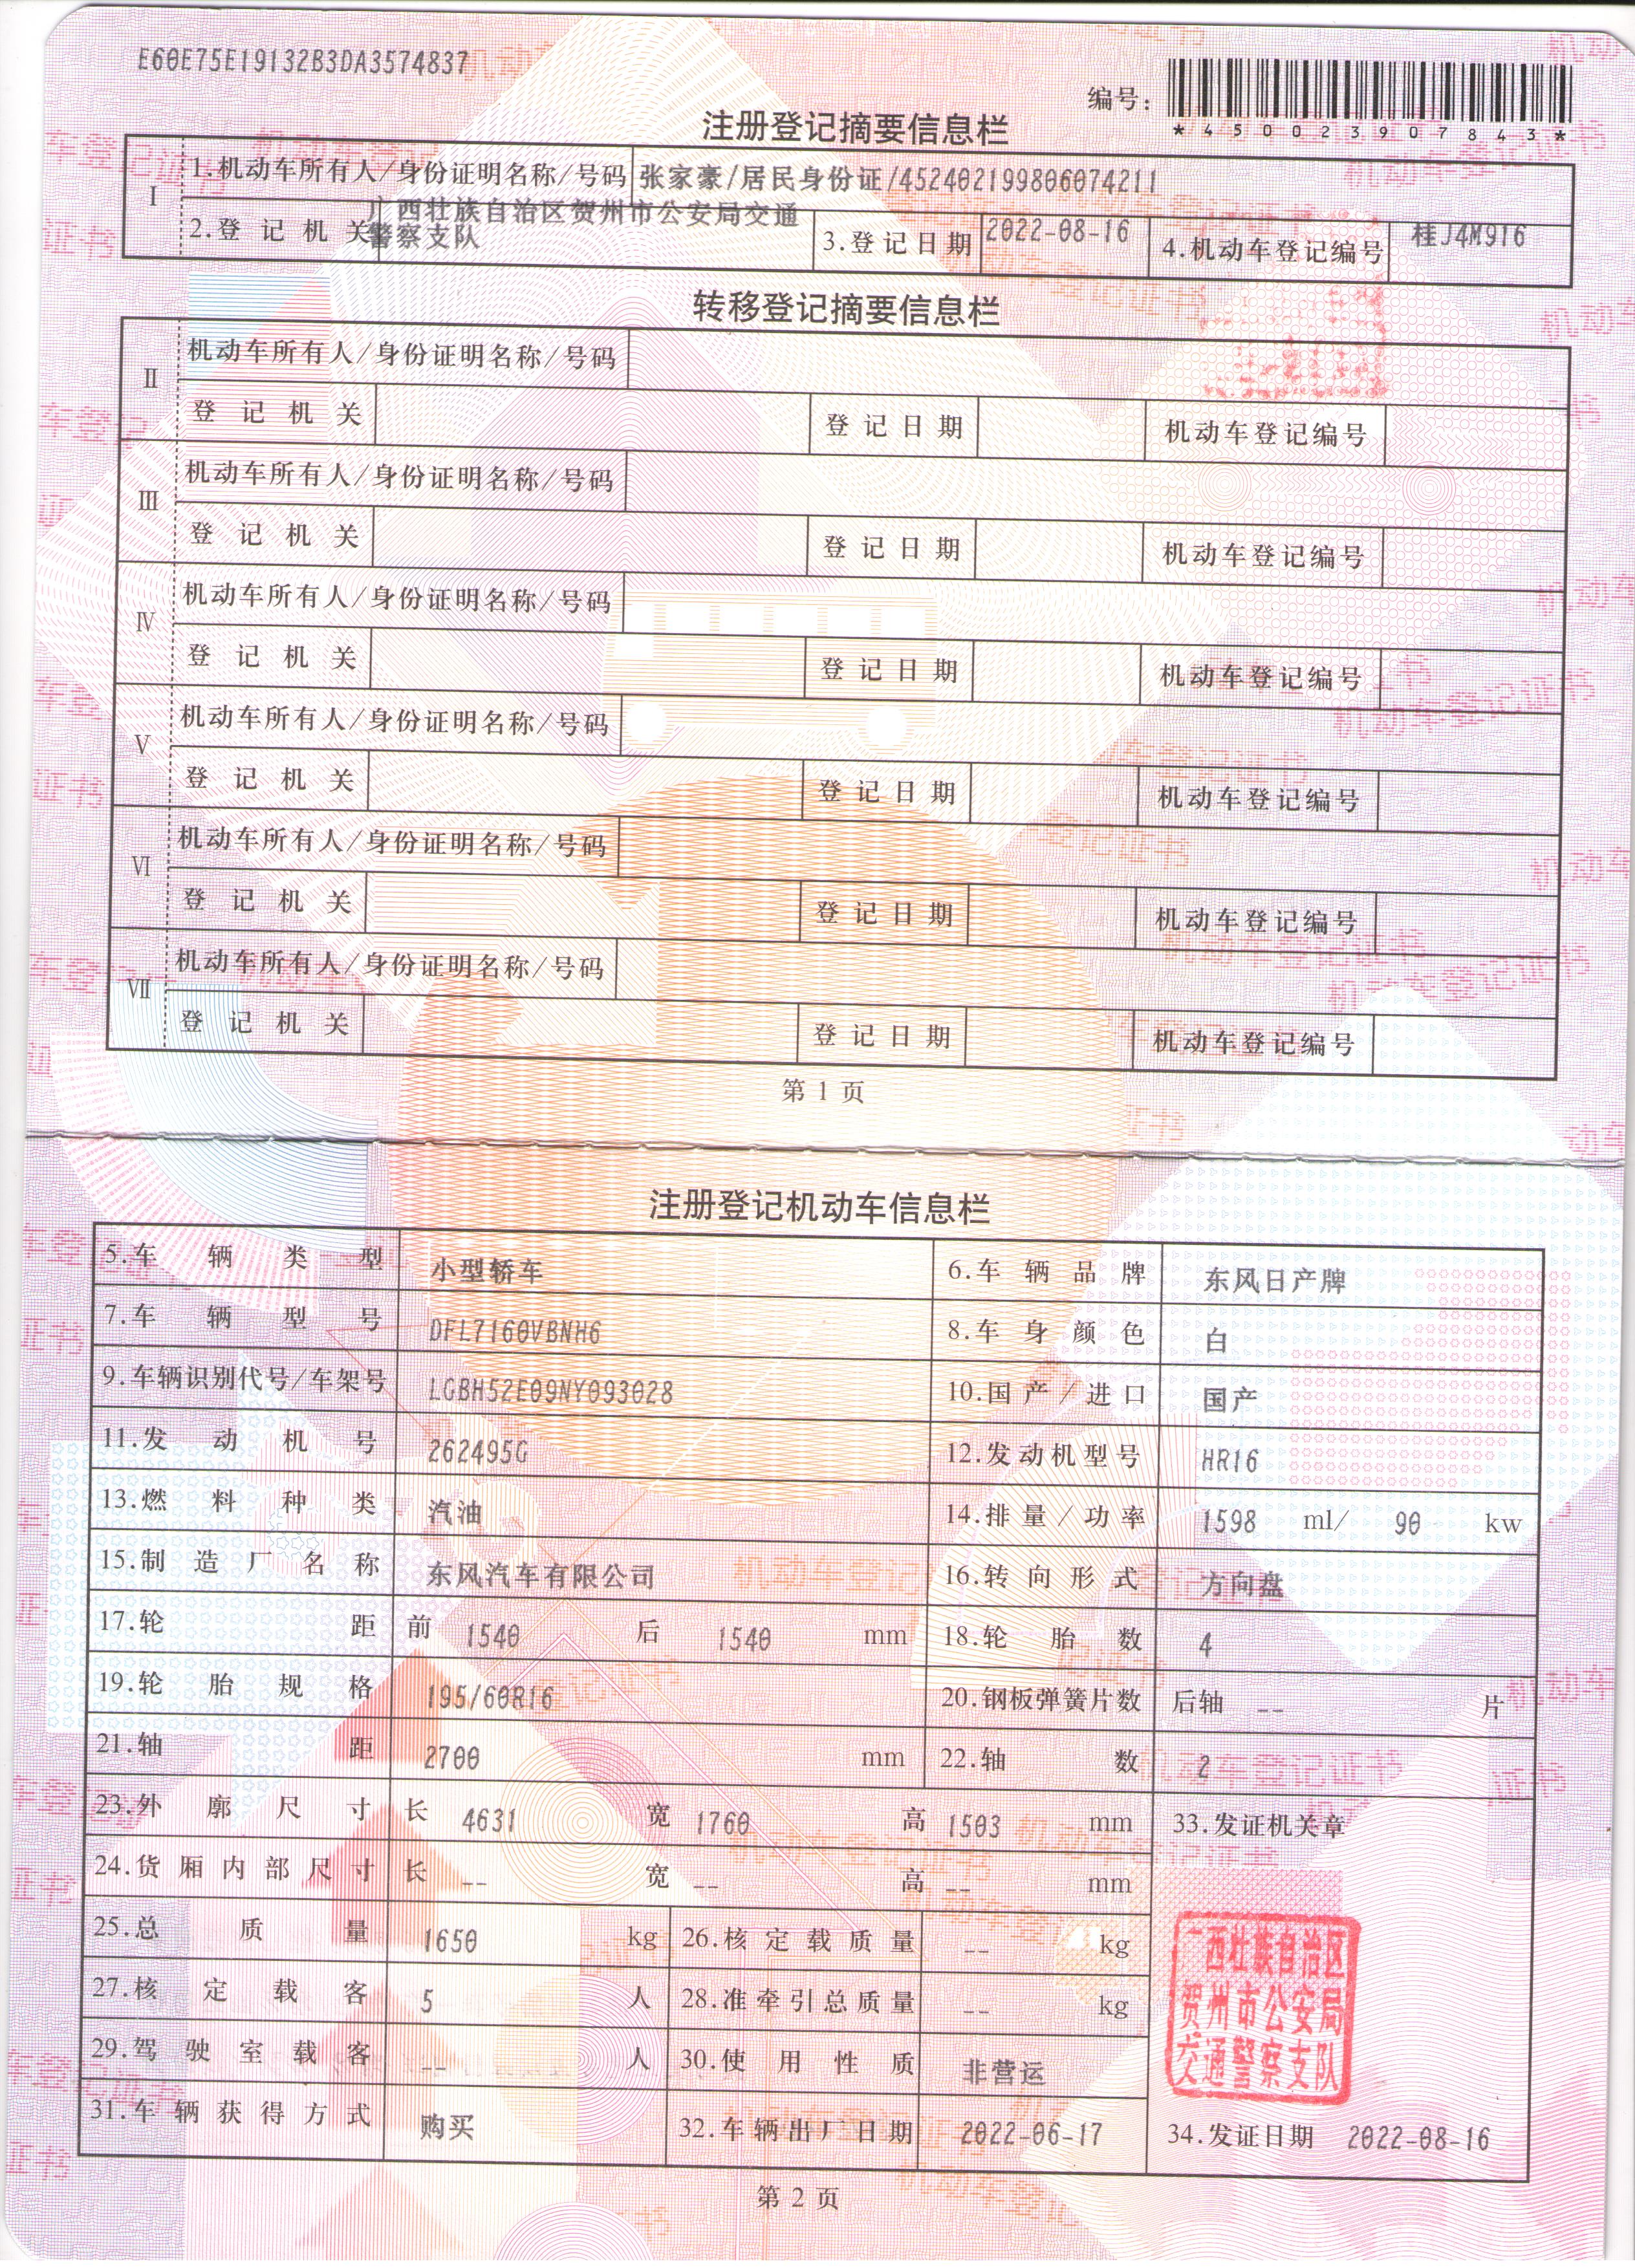 E60E75E19132B3DA3574837
编号：
*450023907843*
注册登记摘要信息栏
I 1.机动车所有人/身份证明名称/号码 张家豪/居民身份证/452402199806074211
2.登记机关 广西壮族自治区贺州市公安局交通警察支队 3.登记日期 2022-08-16 4.机动车登记编号 桂J4M916
转移登记摘要信息栏
II 机动车所有人/身份证明名称/号码
登记机关 登记日期 机动车登记编号
III 机动车所有人/身份证明名称/号码
登记机关 登记日期 机动车登记编号
IV 机动车所有人/身份证明名称/号码
登记机关 登记日期 机动车登记编号
V 机动车所有人/身份证明名称/号码
登记机关 登记日期 机动车登记编号
VI 机动车所有人/身份证明名称/号码
登记机关 登记日期 机动车登记编号
VII 机动车所有人/身份证明名称/号码
登记机关 登记日期 机动车登记编号
第 1 页
注册登记机动车信息栏
5.车辆类型 小型轿车 6.车辆品牌 东风日产牌
7.车辆型号 DFL7160VBNH6 8.车身颜色 白
9.车辆识别代号/车架号 LGBH52E09NY093028 10.国产/进口 国产
11.发动机号 262495G 12.发动机型号 HR16
13.燃料种类 汽油 14.排量/功率 1598 ml/ 90 kw
15.制造厂名称 东风汽车有限公司 16.转向形式 方向盘
17.轮距 前 1540 后 1540 mm 18.轮胎数 4
19.轮胎规格 195/60R16 20.钢板弹簧片数 后轴 -- 片
21.轴距 2700 mm 22.轴数 2
23.外廓尺寸 长 4631 宽 1760 高 1503 mm 33.发证机关章
24.货厢内部尺寸 长 -- 宽 -- 高 -- mm
25.总质量 1650 kg 26.核定载质量 -- kg
27.核定载客 5 人 28.准牵引总质量 -- kg
29.驾驶室载客 -- 人 30.使用性质 非营运
广西壮族自治区
贺州市公安局
交通警察支队
31.车辆获得方式 购买 32.车辆出厂日期 2022-06-17 34.发证日期 2022-08-16
第 2 页